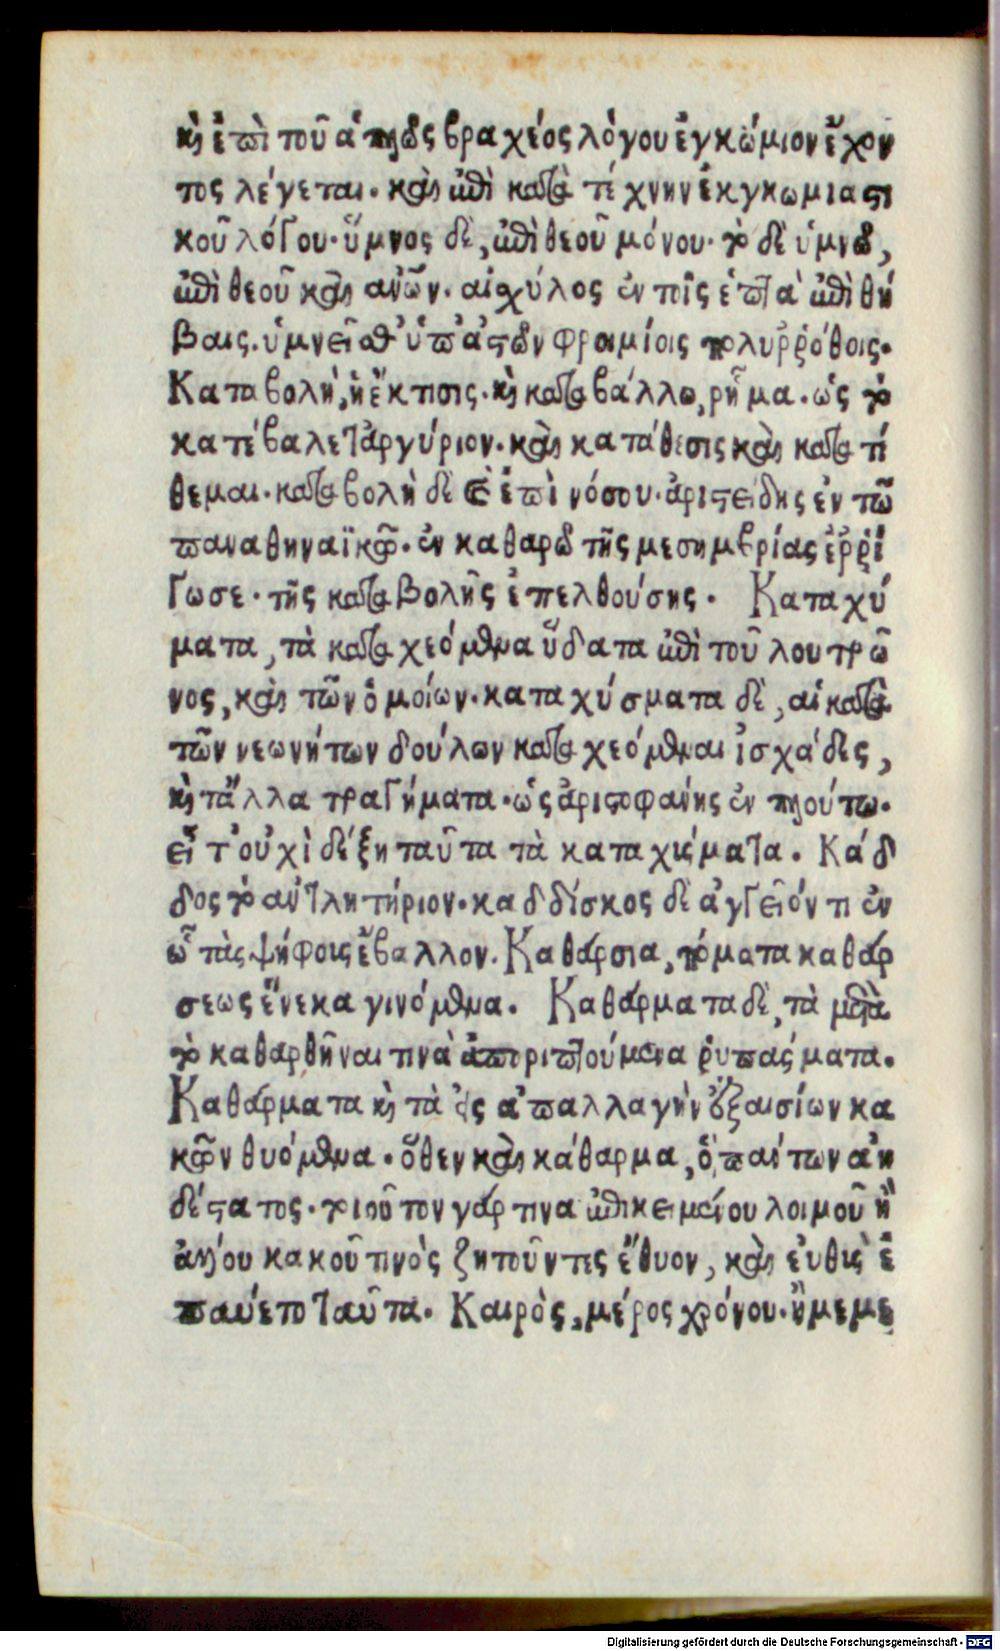 καὶ ἐπὶ τοῦ ἁπλῶς βραχέος λόγου ἐγκώμιον ἔχον
τος λέγεται. καὶ ἐπὶ κατὰ τέχνην ἐκγκωμιαστι
κοῦ λόγου. ὕμνος δὲ, ἐπὶ θεοῦ μόνου. τὸ δὲ ὑμνῶ,
ἐπὶ θεοῦ καὶ ἀνῶν. αἰχύλος ἐν τοῖς ἑπτὰ ἐπὶ θή
βαις. ὑμνεῖσθ' ὑπ' ἀστῶν φροιμίοις πολυῤῥόθοις.
Καταβολὴ, ἡ ἔκτισις. καὶ καταβάλλω, ρῆμα. ὡς τὸ
κατέβαλε τἀργύριον. καὶ κατάθεσις καὶ κατατί
θεμαι. καταβολὴ δὲ καὶ ἐπὶ νόσου. ἀριστείδης ἐν τῶ
παναθηναϊκῶ. ἐν καθαρῶ τῆς μεσημβρίας ἐῤῥί
γωσε. τῆς καταβολῆς ἐπελθούσης. Καταχύ
ματα, τὰ καταχεόμενα ὕδατα ἐπὶ τοῦ λουτρῶ
νος, καὶ τῶν ὁμοίων. καταχύσματα δὲ, αἱ κατὰ
τῶν νεωνήτων δούλων καταχεόμεναι ἰσχάδες,
καὶ τἄλλα τραγήματα. ὡς ἀριστοφάνης ἐν πλούτω.
εἶτ' οὐχὶ δέξη ταῦτα τὰ καταχύσματα. Κάδ
δος τὸ ἀντλητήριον. καδδίσκος δὲ ἀγγεῖόν τι ἐν
ὧ τὰς ψήφους ἔβαλλον. Καθάρσια, πόματα καθάρ
σεως ἕνεκα γινόμενα. Καθάρματα δὲ, τὰ μετὰ
τὸ καθαρθῆναι τινὰ ἀποριπτούμενα ῥυπάσματα.
Καθάρματα καὶ τὰ ἐς ἀπαλλαγὴν ἐξαισίων κα
κῶν θυόμενα. ὅθεν καὶ κάθαρμα, ὁ πάντων ἀη
δέστατος. τοιοῦτον γάρ τινα ἐπικειμένου λοιμοῦ ἢ
ἄλλου κακοῦ τινὸς ζητοῦντες ἔθυον, καὶ εὐθὺς ἐ
παύετο ταῦτα. Καιρὸς, μέρος χρόνου. ἢ μεμε
Digitalisierung gefördert durch die Deutsche Forschungsgemeinschaft - DFG